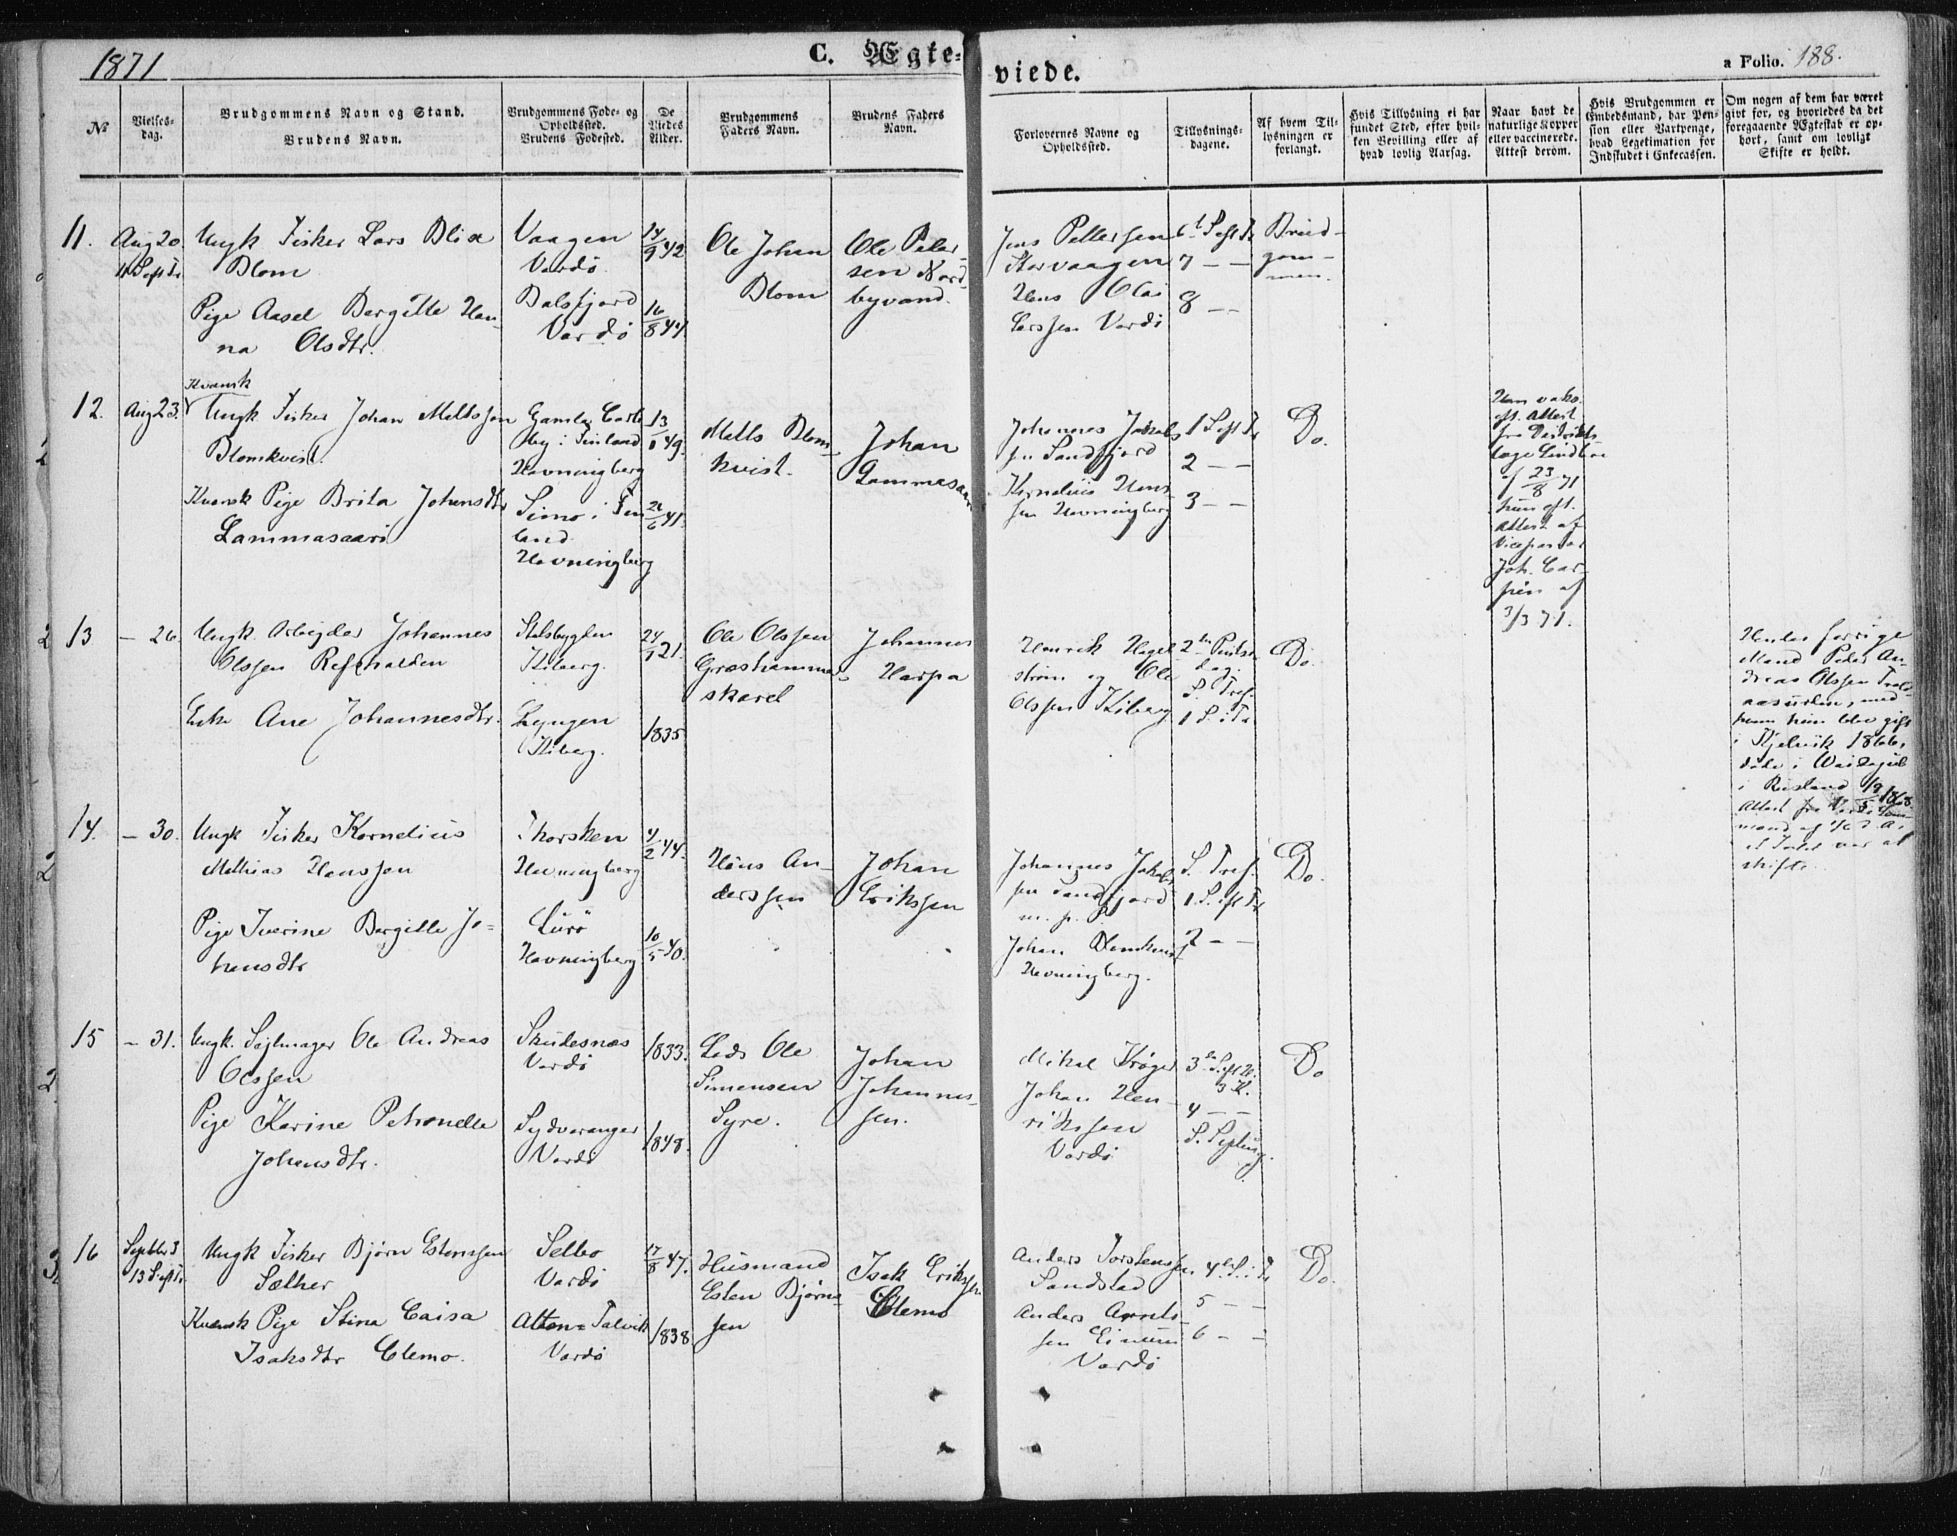 1871
C. Ægte-
viede.
a Folio. 188.
№
Vielses-
dag.
Brudgommens Navn og Stand.
Brudens Navn.
Brudgommens Føde- og
Opholdssted.
Brudens Fødested.
De
Viedes
Alder.
Brudgommens
Faders Navn.
Brudens Faders
Navn.
Forlovernes Navne og
Opholdssted.
Tillysnings-
dagene.
Af hvem Til-
lysningen er
forlangt.
Hvis Tillysning ei har
fundet Sted, efter hvil-
ken Bevilling eller af
hvad lovlig Aarsag.
Naar havt de
naturlige Kopper
eller vaccinerede.
Attest derom.
Hvis Brudgommen er
Embedsmand, har Pen-
sion eller Vartpenge,
hvad Legetimation for
Indskudet i Enkecassen.
Om nogen af dem har været
givt før, og hvorledes da det
foregaaende Ægteskab er op-
hørt, samt om lovligt
Skifte er holdt.
11.
Aug 20.
11 S eft Tr
Ungk Fisker Lars Blix
Blom
Pige Aasel Bergitte Han-
na Olsdtr.
Vaagen
Vardø
Balsfjord
Vardø
14/9 42
16/8 44
Ole Johan
Blom
Ole Peter
sen Nord
byvand.
Jens Pettersen
Storvaagen
Hans Olai
Larssen Vardø
6t S eft Tr
7 — —
8 — —
Brud-
gom-
men.
12.
Aug 23.
Kvensk
Ungk Fisker Johan Mattssen
Blomkvist.
Kvensk Pige Brita Johansdtr
Lammasaari
Gamla Carle
by i Finland
Havningberg
Simo i Fin
land
Havningberg
49.
41.
Matts Blom-
kvist.
Johan
Lammasaari
Johannes Jakobs
sen Sandfjord
Kornelius Hans-
sen Havningberg
1 S eft Tr
2 — —
3 — —
Do.
Han vakc.
eft. Attest
fra Distrikts-
læge Lindboe
af 23/8 71
hun eft.
Attest af
Vicepastor
Joh. Car-
pen af
3/3 71.
13
— 26.
Ungk. Arbeider Johannes
Olssen Refsnalden
Enke Ane Johannesdtr.
Kiberg.
Lyngen
Kiberg.
21.
1835
Ole Olssen
Græshamme
skaret
Johannes
Harpa
Henrik Hegel
strøm og Ole
Olssen Kiberg
2den Pintse
dag.
S. Tref.
1 S. i Tr
Do.
Hendes forrige
Mand Peder An-
dreas Olssen Trold-
aasurden, med
hvem hun blev gift
i Kjelvik 1866,
døde i
i Rusland 1868
14.
— 30.
Ungk Fisker Kornelius
Mathias Hanssen
Pige Iverine Bergitte Jo-
hansdtr
Thorsken
Havningberg
Lurø
Havningberg
4/2 44.
10/5 40.
Hans An-
derssen
Johan
Erikssen
Johannes Jakobs
sen Sandfjord
m. p. P.
Johan Blomkvist
Havningberg.
S. Tref.
1. S. eft Tr
2 — —
Do.
15
— 31.
Ungk. Sejlmager Ole Andreas
Olssen
Pige Karine Petronelle
Johansdtr.
Skudesnæs
Vardø
Sydvaranger
Vardø
1833.
1848.
Lods Ole
Simensen
Syre.
Johan
Johannes-
sen.
Mikal Krøger
Johan Hen-
rikssen
Vardø
4 — —
Do
16
Septbr 3
13 S eft Tr
Ungk Fisker Bjørn Estenssen
Sæther
Kvensk Pige Stina Caisa
Isaksdtr Clemo.
Selbo
Vardø
Alten-Talvik
Vardø
17/8 47.
1838
Husmand
Esten Bjørns-
sen
Isak Erikssen
Clemo
Anders Torstenssen
Sandstad
Anders Arnts-
sen
Vardø
4de S. i Tr
5 — —
6 — —
Do.